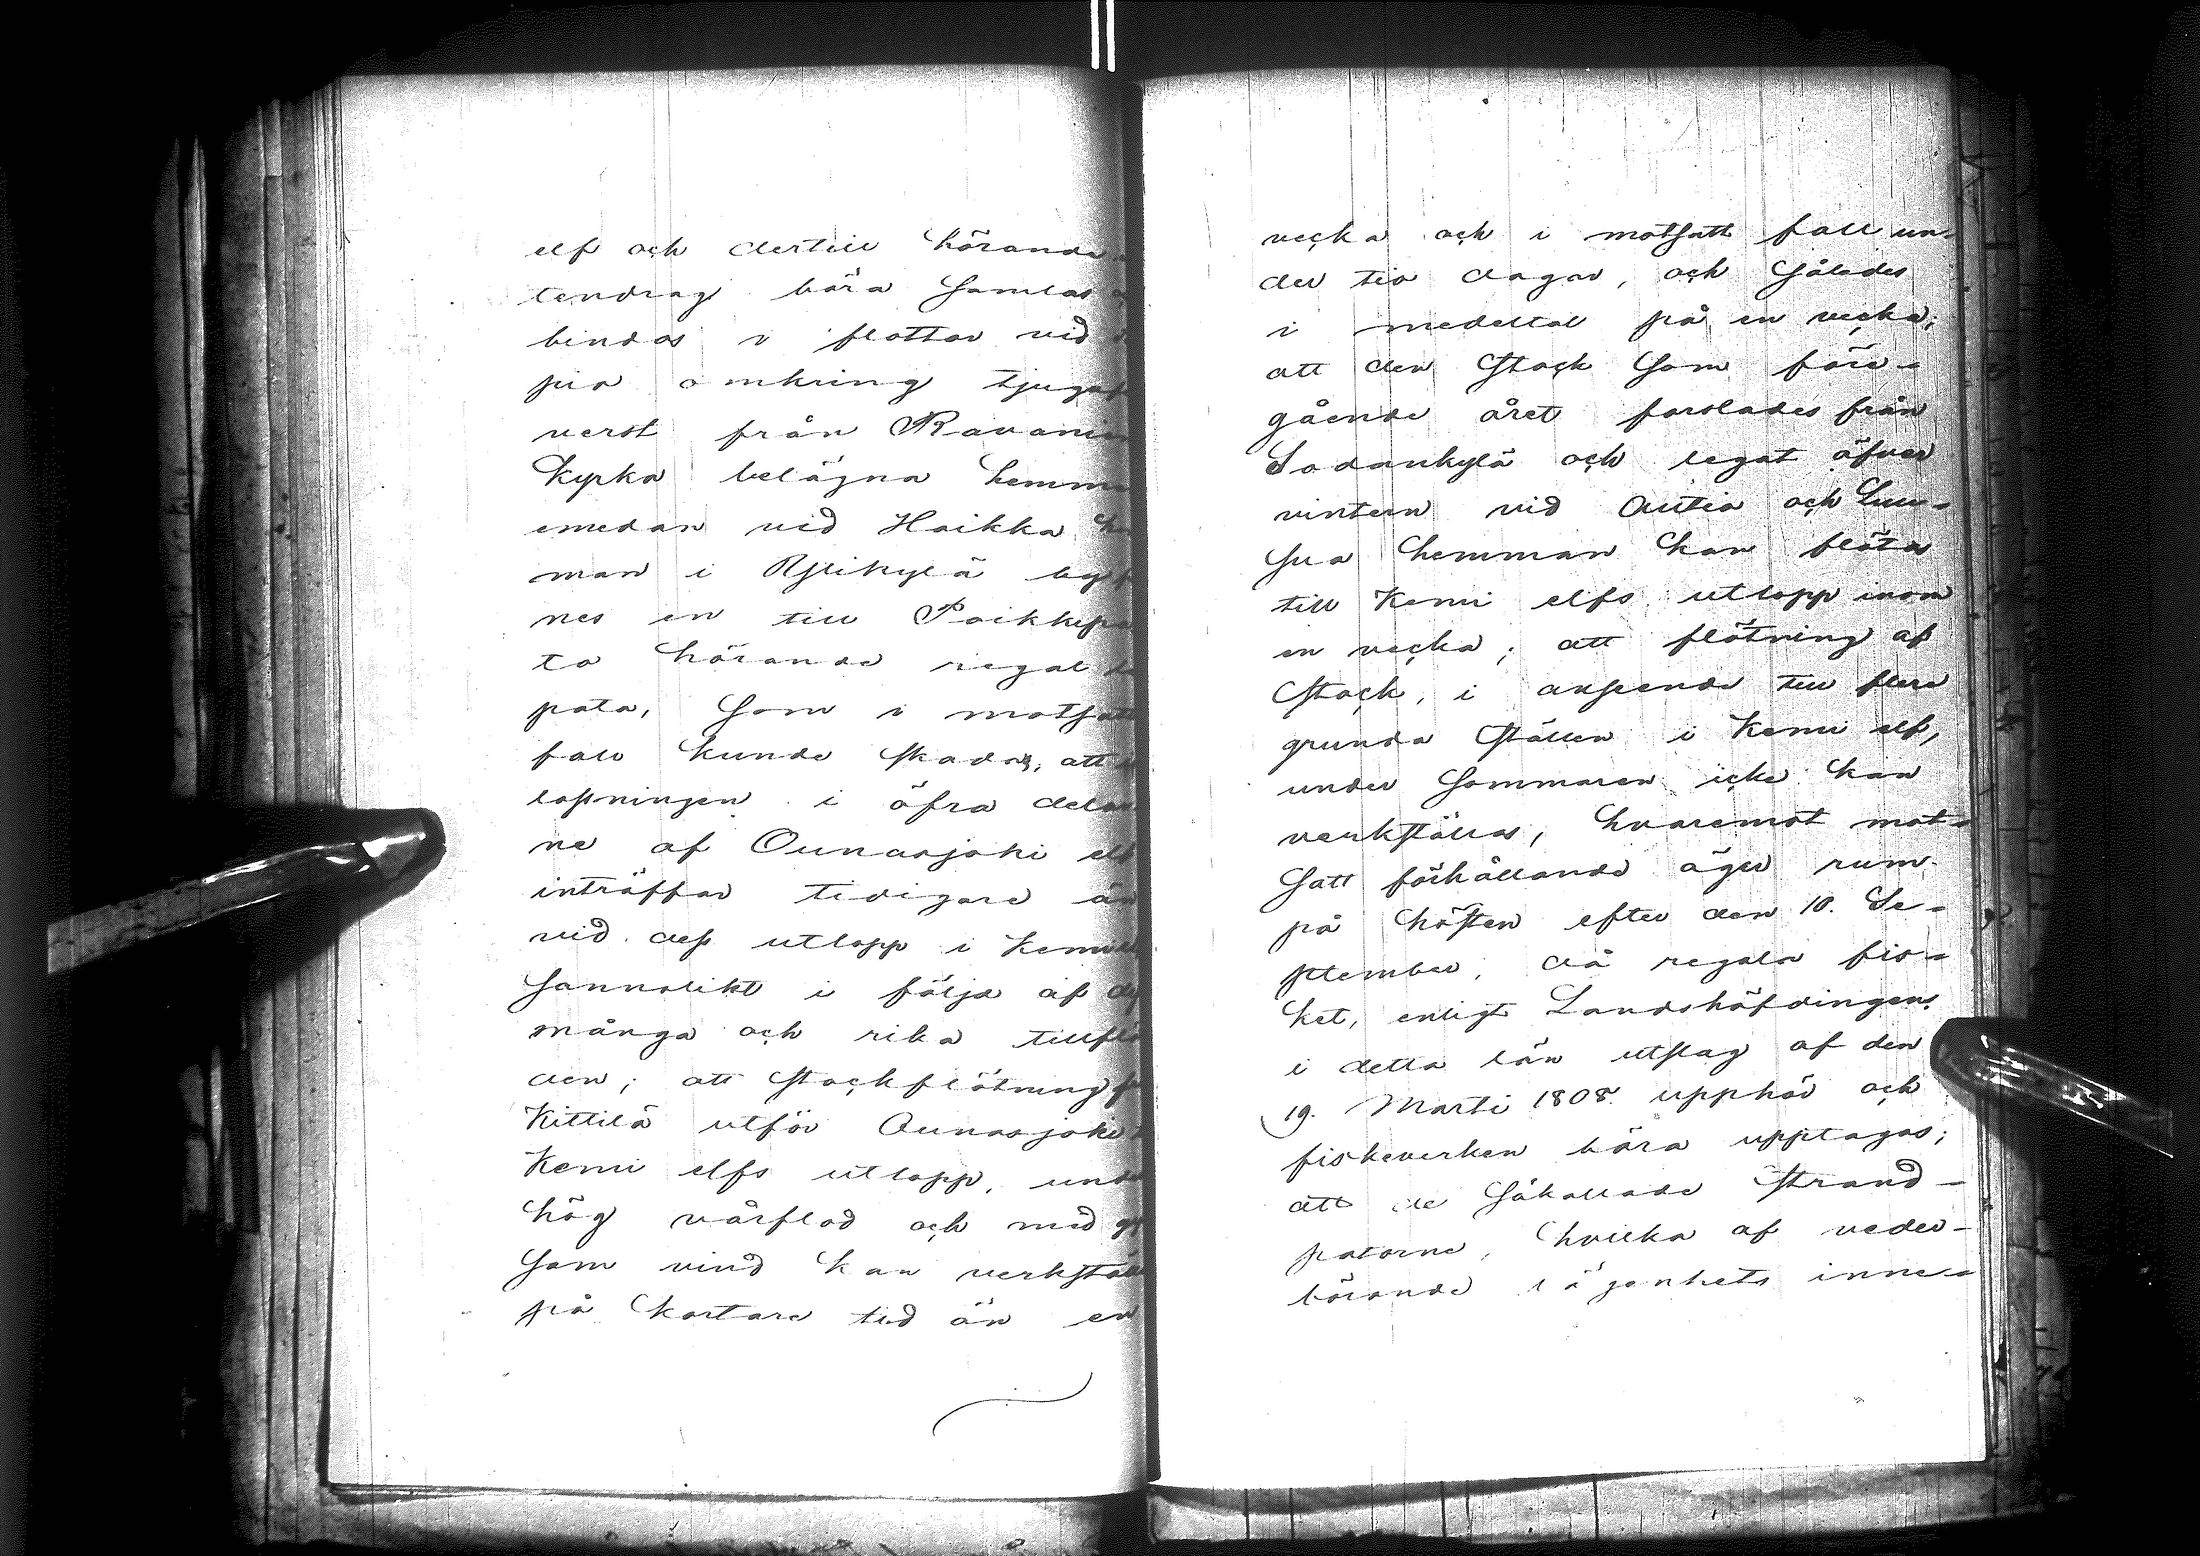 elf och dertill hörande
tendrag böra samlas
bindas i flottar vid
pia omkring tjuge
verst från Rovanie
Kyrka belägna hemm
emedan vid Haikka he
man i Ylikylä be
nes en till Paikkepa
to hörande regal
pata, som i motsatt
fall kunde skadas; att
lossningen i öfra delar
ne af Ounasjoki elf
inträffar tidigare än
vid dess utlopp i Kemi
sannolikt i följd af de
många och rika tillflö
den; att stockflötning f
Kittilä utför Ounasjoki
Kemi elfs utlopp, unde
hög vårflod och med gy
sam vind kan verkställ
på kortare tid än en
vecka och i motsatt fall un-
der tio dagar, och således
i medeltal på en vecka;
att den stock som före-
gående året forslades från
Sodankylä och legat öfver
vintern vid Autio och Luu-
sua hemman kan flötas
till Kemi elfs utlopp inom
en vecka; att flötning af
stock, i anseende till flere
grunda ställen i Kemi elf,
under sommaren icke kan
verkställas, hvaremot mot-
satt förhållande äger rum
på hösten efter den 10. Se-
ptember, då regala fis-
ket, enligt Landshöfdingens
i detta län utslag af den
19. Marti 1808 upphör och
fiskeverken böra upptagas;
att de såkallade strand-
patorne, hvilka af veder-
börande lägenhets inne-